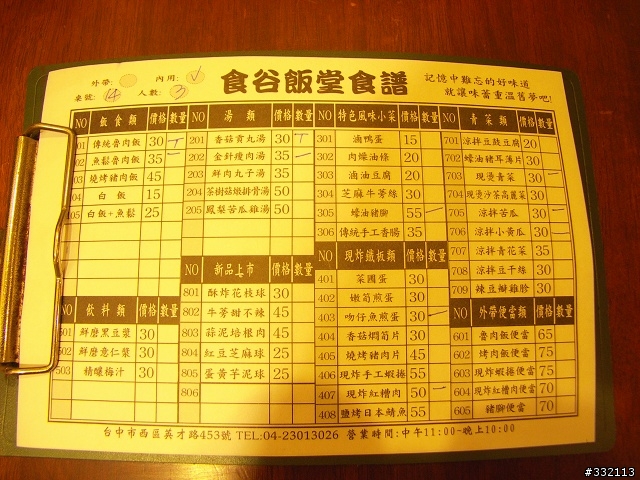 外帶: 內用: ✓
桌號: 14 人數: 3
食谷飯堂食譜
記憶中難忘的好味道
就讓味蕾重溫舊夢吧!
NO 飯食類 價格 數量
101 傳統魯肉飯 30 T
102 魚鬆魯肉飯 35 一
103 燒烤豬肉飯 45
104 白飯 15
105 白飯+魚鬆 25
NO 飲料類 價格 數量
501 鮮磨黑豆漿 30
502 鮮磨薏仁漿 30
503 精釀梅汁 30
NO 湯類 價格 數量
201 香菇貢丸湯 30 T
202 金針瘦肉湯 30 一
203 鮮肉丸子湯 35
204 茶樹菇燉排骨湯 50
205 鳳梨苦瓜雞湯 50
NO 新品上市 價格 數量
801 酥炸花枝球 30
802 牛蒡甜不辣 45
803 蒜泥培根肉 45
804 紅豆芝麻球 25
805 蛋黃芋泥球 25
806
NO 特色風味小菜 價格 數量
301 滷鴨蛋 15
302 肉燥油條 20
303 滷油豆腐 20
304 芝麻牛蒡絲 30
305 蠔油豬腳 55 一
306 傳統手工香腸 35
NO 現炸鐵板類 價格 數量
401 菜圃蛋 30
402 嫩筍煎蛋 30
403 吻仔魚煎蛋 30 一
404 香菇燜筍片 30
405 燒烤豬肉片 45
406 現炸手工蝦捲 55
407 現炸紅糟肉 50 一
408 鹽烤日本鯖魚 55
NO 青菜類 價格 數量
701 涼拌豆豉豆腐 20
702 蠔油豬耳薄片 30
703 現燙青菜 30 一
704 現燙沙茶高麗菜 30
705 涼拌苦瓜 30 一
706 涼拌小黃瓜 30 一
707 涼拌青花菜 35
708 涼拌豆干絲 30
709 辣豆瓣雞胗 30
NO 外帶便當類 價格
601 魯肉飯便當 65
602 烤肉飯便當 75
603 現炸蝦捲便當 75
604 現炸紅糟肉便當 70
605 豬腳便當 70
台中市西區英才路453號 TEL:04-23013026 營業時間:中午11:00-晚上10:00
#332113